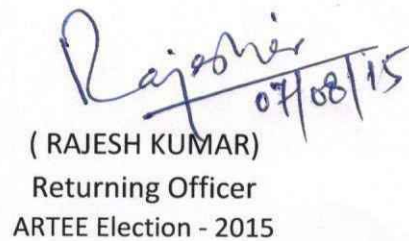 Rajesh
07/08/15
( RAJESH KUMAR)
Returning Officer
ARTEE Election - 2015